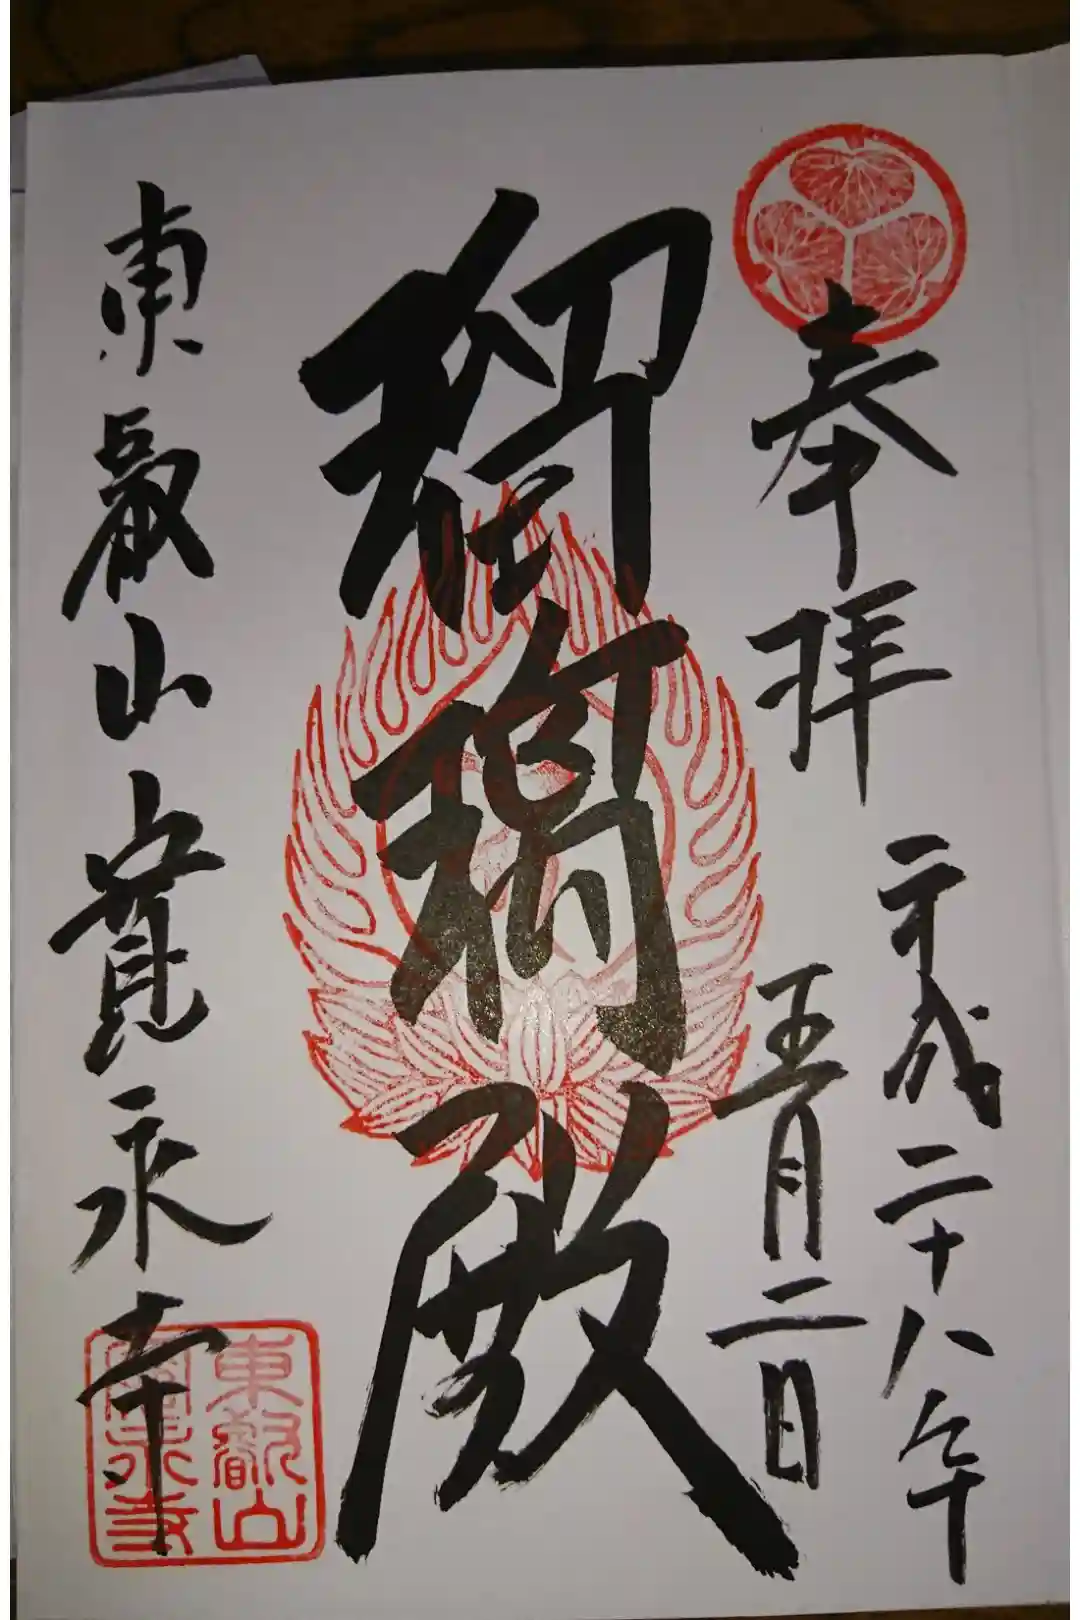 奉拝
平成二十八年
五月二日
瑠璃殿
東叡山寛永寺
東叡山
寛永寺